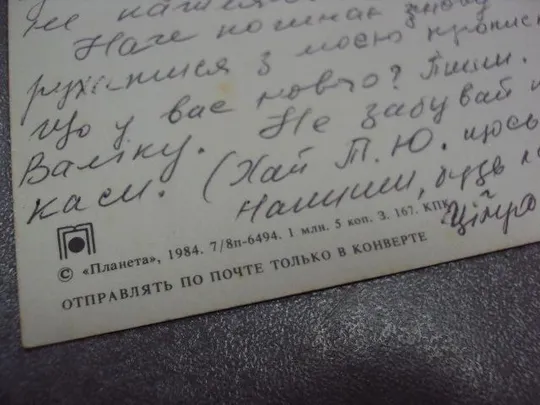 не
Наче починає знову
рухатися з моєю пропис
Що у вас нового? Пиши.
Валіку. Не забувай
каси. (Хай Т. Ю. щось
Напиши, будь
Цілую
© «Планета», 1984. 7/8п-6494. 1 млн. 5 коп. З. 167. КПК
ОТПРАВЛЯТЬ ПО ПОЧТЕ ТОЛЬКО В КОНВЕРТЕ